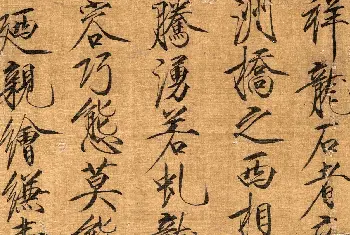 祥龍石者立
洲橋之西相
騰湧若虬龍
容巧態莫能
廼親繪縑素